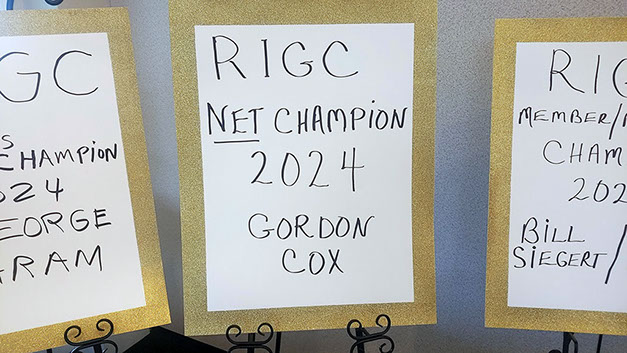 GC
S
CHAMPION
024
EORGE
RAM
RIGC
NET CHAMPION
2024
GORDON
COX
RIG
MEMBER/
CHAM
202
BILL
SIEGERT/